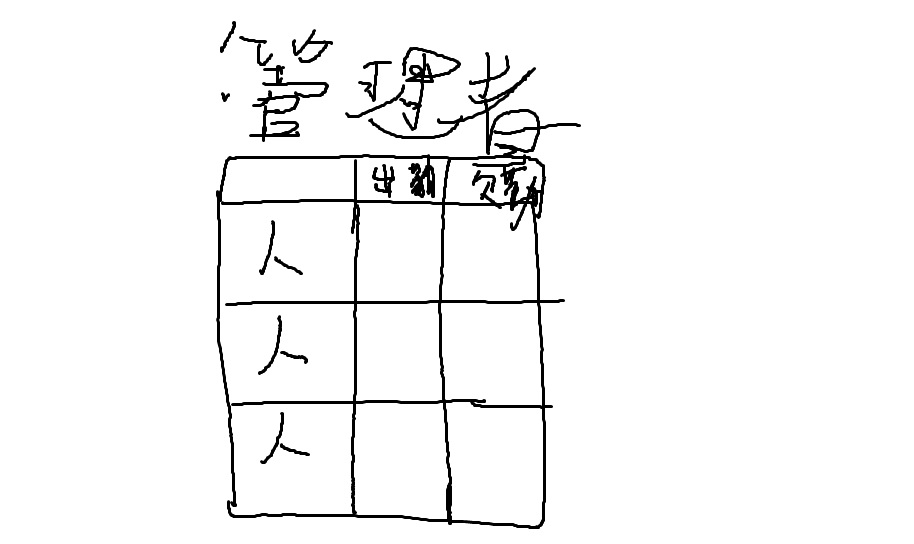 管理者
出勤 欠勤
人
人
人